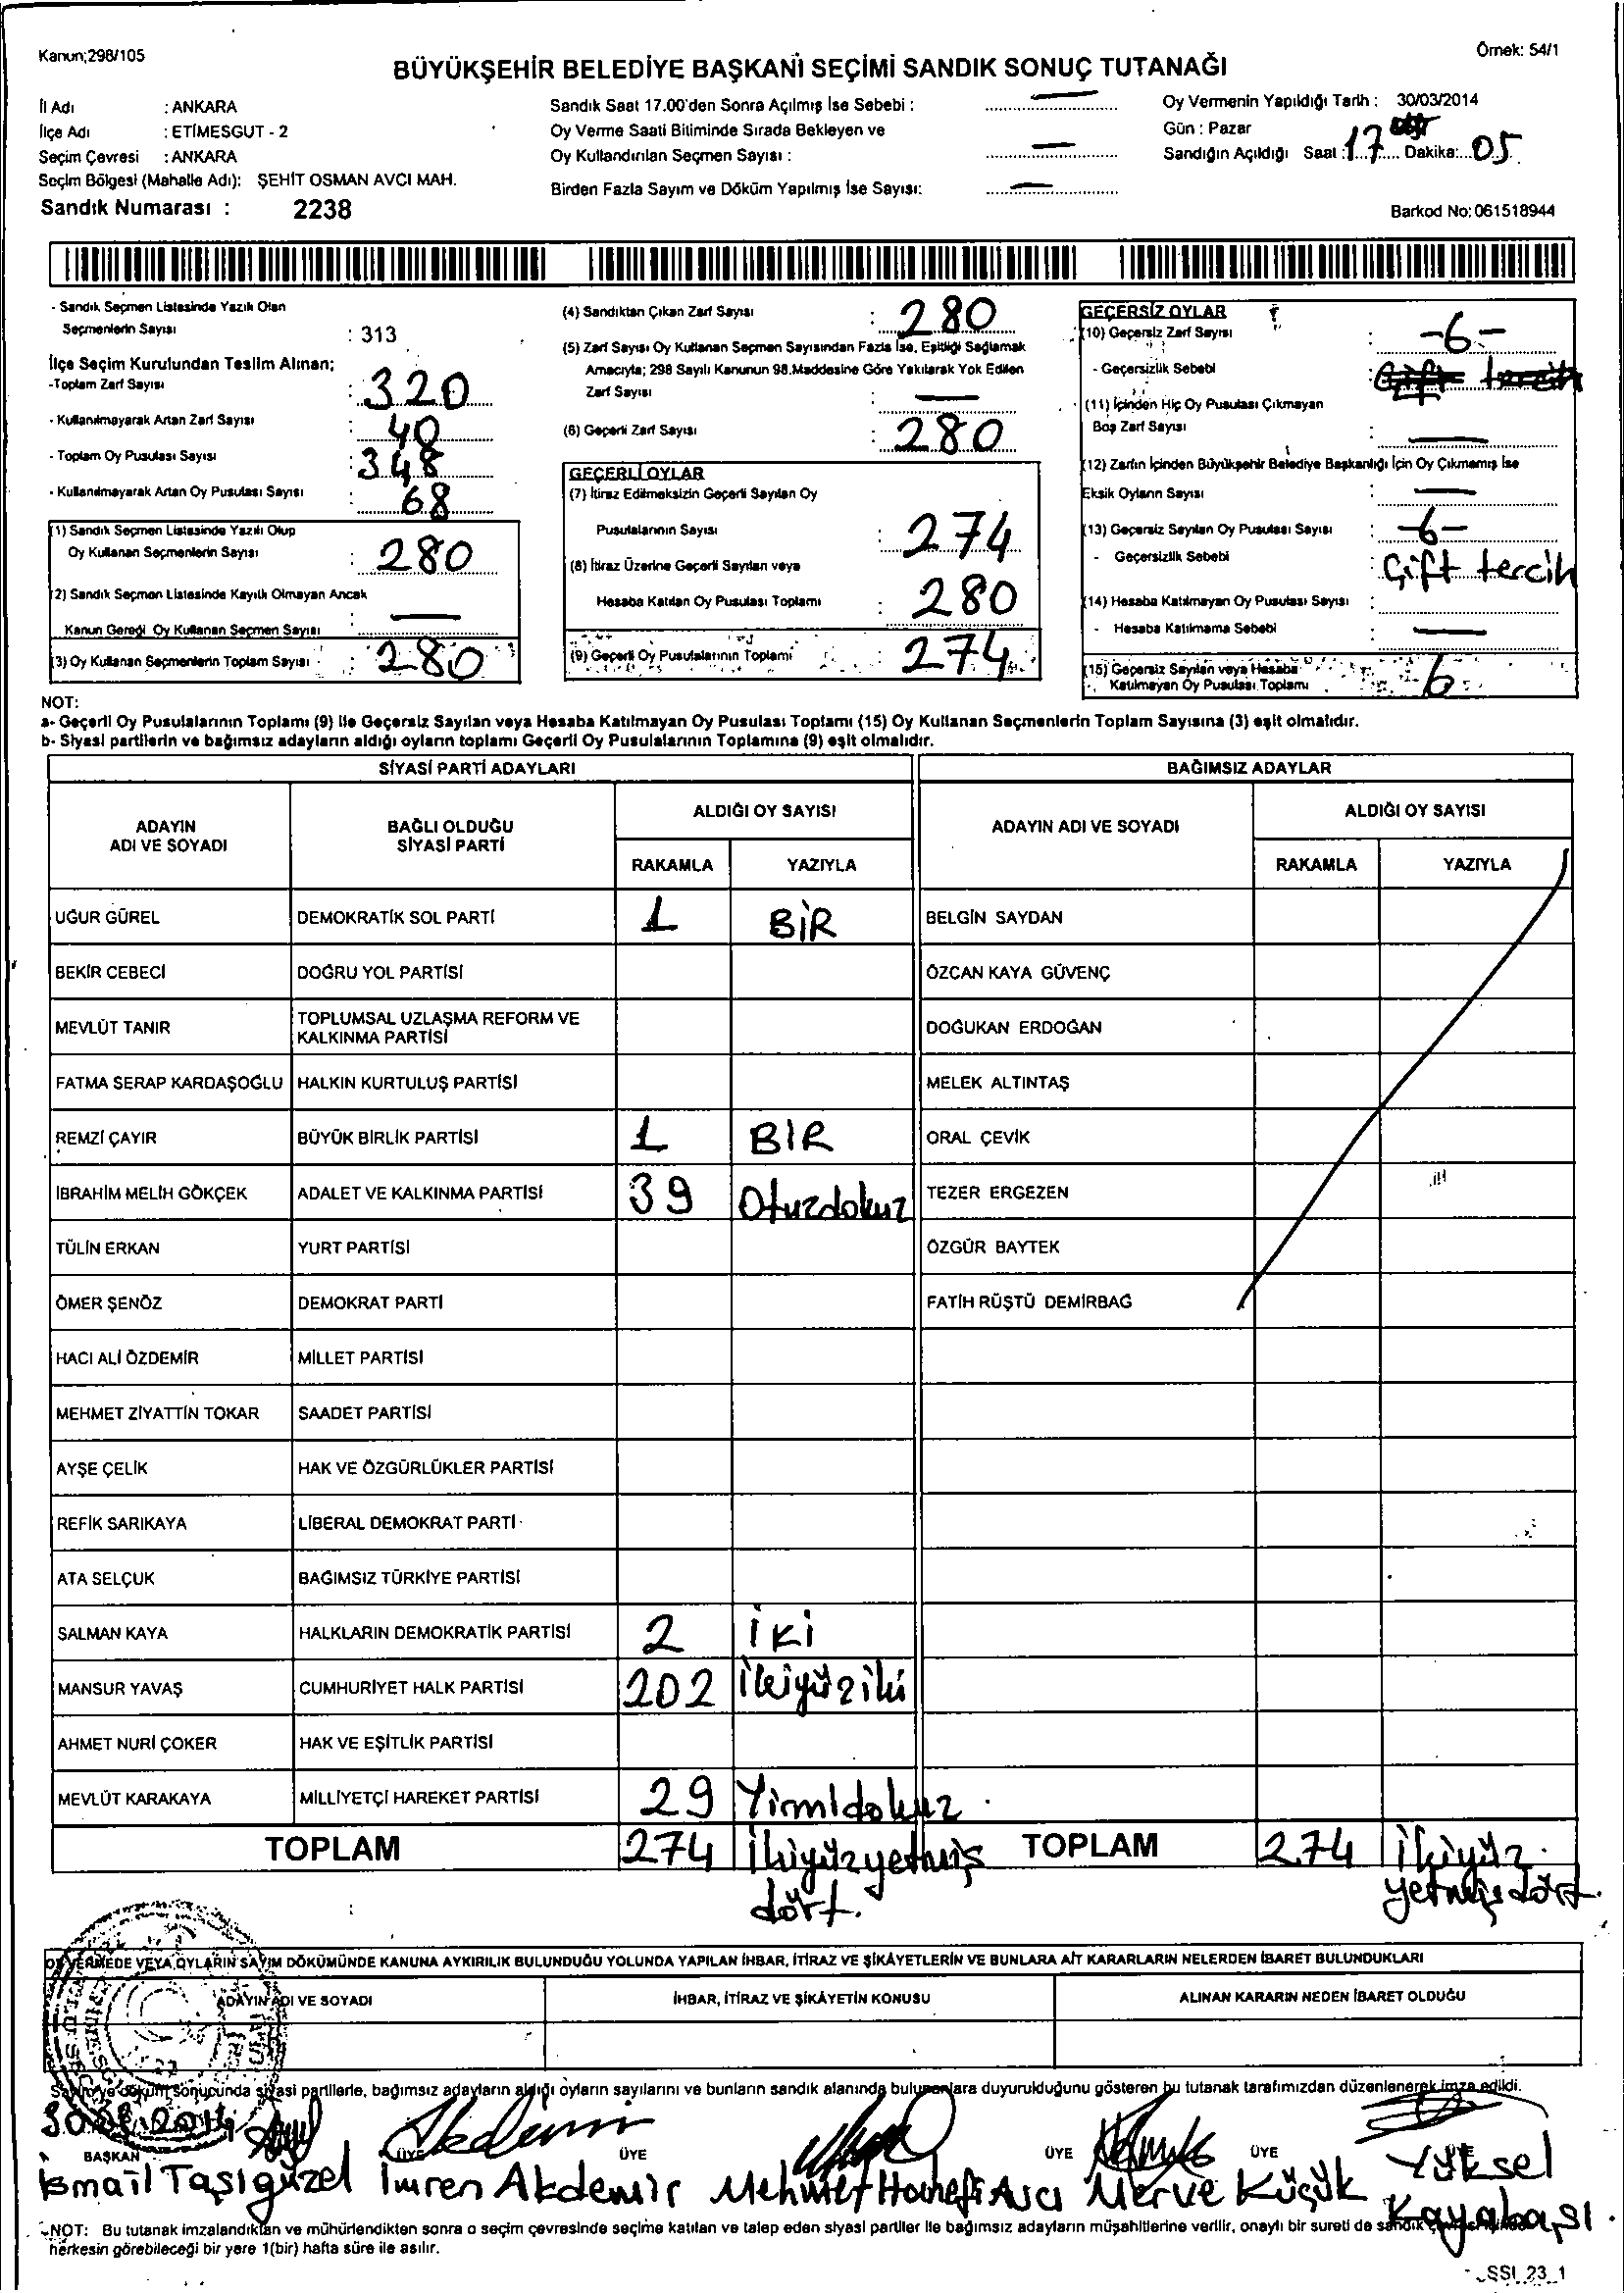 Kanun;298/105
Örnek: 54/1
BÜYÜKŞEHİR BELEDİYE BAŞKANI SEÇİMİ SANDIK SONUÇ TUTANAĞI
İl Adı : ANKARA
İlçe Adı : ETİMESGUT - 2
Seçim Çevresi : ANKARA
Seçim Bölgesi (Mahalle Adı): ŞEHİT OSMAN AVCI MAH.
Sandık Numarası : 2238
Sandık Saat 17.00'den Sonra Açılmış İse Sebebi : —
Oy Verme Saati Bitiminde Sırada Bekleyen ve
Oy Kullandırılan Seçmen Sayısı : —
Birden Fazla Sayım ve Döküm Yapılmış İse Sayısı: —
Oy Vermenin Yapıldığı Tarih : 30/03/2014
Gün : Pazar
Sandığın Açıldığı Saat : 17 Dakika: 05
Barkod No: 061518944
- Sandık Seçmen Listesinde Yazılı Olan
Seçmenlerin Sayısı : 313
İlçe Seçim Kurulundan Teslim Alınan;
-Toplam Zarf Sayısı : 320
- Kullanılmayarak Artan Zarf Sayısı : 40
- Toplam Oy Pusulası Sayısı : 348
- Kullanılmayarak Artan Oy Pusulası Sayısı : 68
(1) Sandık Seçmen Listesinde Yazılı Olup
Oy Kullanan Seçmenlerin Sayısı : 280
(2) Sandık Seçmen Listesinde Kayıtlı Olmayan Ancak
Kanun Gereği Oy Kullanan Seçmen Sayısı : —
(3) Oy Kullanan Seçmenlerin Toplam Sayısı : 280
(4) Sandıktan Çıkan Zarf Sayısı : 280
(5) Zarf Sayısı Oy Kullanan Seçmen Sayısından Fazla İse, Eşitliği Sağlamak
Amacıyla; 298 Sayılı Kanunun 98.Maddesine Göre Yakılarak Yok Edilen
Zarf Sayısı : —
(6) Geçerli Zarf Sayısı : 280
GEÇERLİ OYLAR
(7) İtiraz Edilmeksizin Geçerli Sayılan Oy
Pusulalarının Sayısı : 274
(8) İtiraz Üzerine Geçerli Sayılan veya
Hesaba Katılan Oy Pusulası Toplamı : 280
(9) Geçerli Oy Pusulalarının Toplamı : 274
GEÇERSİZ OYLAR
(10) Geçersiz Zarf Sayısı : -6-
- Geçersizlik Sebebi : Çift tercih
(11) İçinden Hiç Oy Pusulası Çıkmayan
Boş Zarf Sayısı : —
(12) Zarfın İçinden Büyükşehir Belediye Başkanlığı İçin Oy Çıkmamış İse
Eksik Oyların Sayısı : —
(13) Geçersiz Sayılan Oy Pusulası Sayısı : -6-
- Geçersizlik Sebebi : Çift tercih
(14) Hesaba Katılmayan Oy Pusulası Sayısı :
- Hesaba Katılmama Sebebi : —
(15) Geçersiz Sayılan veya Hesaba
Katılmayan Oy Pusulası Toplamı : 6
NOT:
a- Geçerli Oy Pusulalarının Toplamı (9) ile Geçersiz Sayılan veya Hesaba Katılmayan Oy Pusulası Toplamı (15) Oy Kullanan Seçmenlerin Toplam Sayısına (3) eşit olmalıdır.
b- Siyasi partilerin ve bağımsız adayların aldığı oyların toplamı Geçerli Oy Pusulalarının Toplamına (9) eşit olmalıdır.
SİYASİ PARTİ ADAYLARI BAĞIMSIZ ADAYLAR
ADAYIN ADI VE SOYADI BAĞLI OLDUĞU SİYASİ PARTİ ALDIĞI OY SAYISI ADAYIN ADI VE SOYADI ALDIĞI OY SAYISI
RAKAMLA YAZIYLA RAKAMLA YAZIYLA
UĞUR GÜREL DEMOKRATİK SOL PARTİ 1 BİR BELGİN SAYDAN
BEKİR CEBECİ DOĞRU YOL PARTİSİ ÖZCAN KAYA GÜVENÇ
MEVLÜT TANIR TOPLUMSAL UZLAŞMA REFORM VE KALKINMA PARTİSİ DOĞUKAN ERDOĞAN
FATMA SERAP KARDAŞOĞLU HALKIN KURTULUŞ PARTİSİ MELEK ALTINTAŞ
REMZİ ÇAYIR BÜYÜK BİRLİK PARTİSİ 1 BİR ORAL ÇEVİK
İBRAHİM MELİH GÖKÇEK ADALET VE KALKINMA PARTİSİ 39 Otuzdokuz TEZER ERGEZEN
TÜLİN ERKAN YURT PARTİSİ ÖZGÜR BAYTEK
ÖMER ŞENÖZ DEMOKRAT PARTİ FATİH RÜŞTÜ DEMİRBAĞ
HACI ALİ ÖZDEMİR MİLLET PARTİSİ
MEHMET ZİYATTİN TOKAR SAADET PARTİSİ
AYŞE ÇELİK HAK VE ÖZGÜRLÜKLER PARTİSİ
REFİK SARIKAYA LİBERAL DEMOKRAT PARTİ
ATA SELÇUK BAĞIMSIZ TÜRKİYE PARTİSİ
SALMAN KAYA HALKLARIN DEMOKRATİK PARTİSİ 2 İKİ
MANSUR YAVAŞ CUMHURİYET HALK PARTİSİ 202 İkiyüziki
AHMET NURİ ÇOKER HAK VE EŞİTLİK PARTİSİ
MEVLÜT KARAKAYA MİLLİYETÇİ HAREKET PARTİSİ 29 Yirmidokuz
TOPLAM 274 İkiyüzyetmiş dört. TOPLAM 274 İkiyüz yetmişdört.
OY VERMEDE VEYA OYLARIN SAYIM DÖKÜMÜNDE KANUNA AYKIRILIK BULUNDUĞU YOLUNDA YAPILAN İHBAR, İTİRAZ VE ŞİKÂYETLERİN VE BUNLARA AİT KARARLARIN NELERDEN İBARET BULUNDUKLARI
ADAYIN ADI VE SOYADI İHBAR, İTİRAZ VE ŞİKÂYETİN KONUSU ALINAN KARARIN NEDEN İBARET OLDUĞU
Sayım ve döküm sonucunda siyasi partilerle, bağımsız adayların aldığı oyların sayılarını ve bunların sandık alanında bulunanlara duyurulduğunu gösteren bu tutanak tarafımızdan düzenlenerek imza edildi.
30.03.2014
BAŞKAN ÜYE ÜYE ÜYE ÜYE
İsmail Taşıgüzel İmren Akdemir Mehmet Hanefi Avcı Merve Küçük Yüksel Kayabaşı
NOT: Bu tutanak imzalandıktan ve mühürlendikten sonra o seçim çevresinde seçime katılan ve talep eden siyasi partiler ile bağımsız adayların müşahitlerine verilir, onaylı bir sureti de sandık
herkesin görebileceği bir yere 1(bir) hafta süre ile asılır.
SSI_23_1